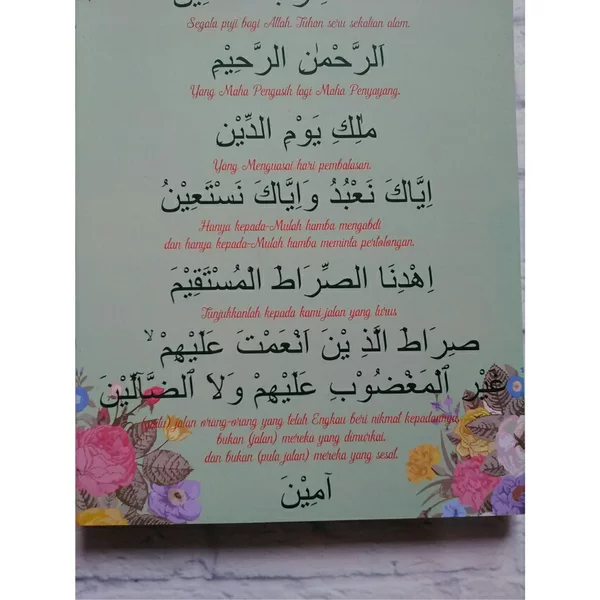 Segala puji bagi Allah, Tuhan seru sekalian alam.
اَلرَّحْمٰنِ الرَّحِيْمِ
Yang Maha Pengasih lagi Maha Penyayang.
مٰلِكِ يَوْمِ الدِّيْنِ
Yang Menguasai hari pembalasan.
اِيَّاكَ نَعْبُدُ وَاِيَّاكَ نَسْتَعِيْنُ
Hanya kepada-Mulah hamba mengabdi
dan hanya kepada-Mulah hamba meminta pertolongan.
اِهْدِنَا الصِّرَاطَ الْمُسْتَقِيْمَ
Tunjukkanlah kepada kami jalan yang lurus
صِرَاطَ الَّذِيْنَ اَنْعَمْتَ عَلَيْهِمْ ۙ
غَيْرِ الْمَغْضُوْبِ عَلَيْهِمْ وَلَا الضَّآلِّيْنَ
(yaitu) jalan orang-orang yang telah Engkau beri nikmat kepadannya,
bukan (jalan) mereka yang dimurkai,
dan bukan (pula jalan) mereka yang sesat.
آمِيْنَ